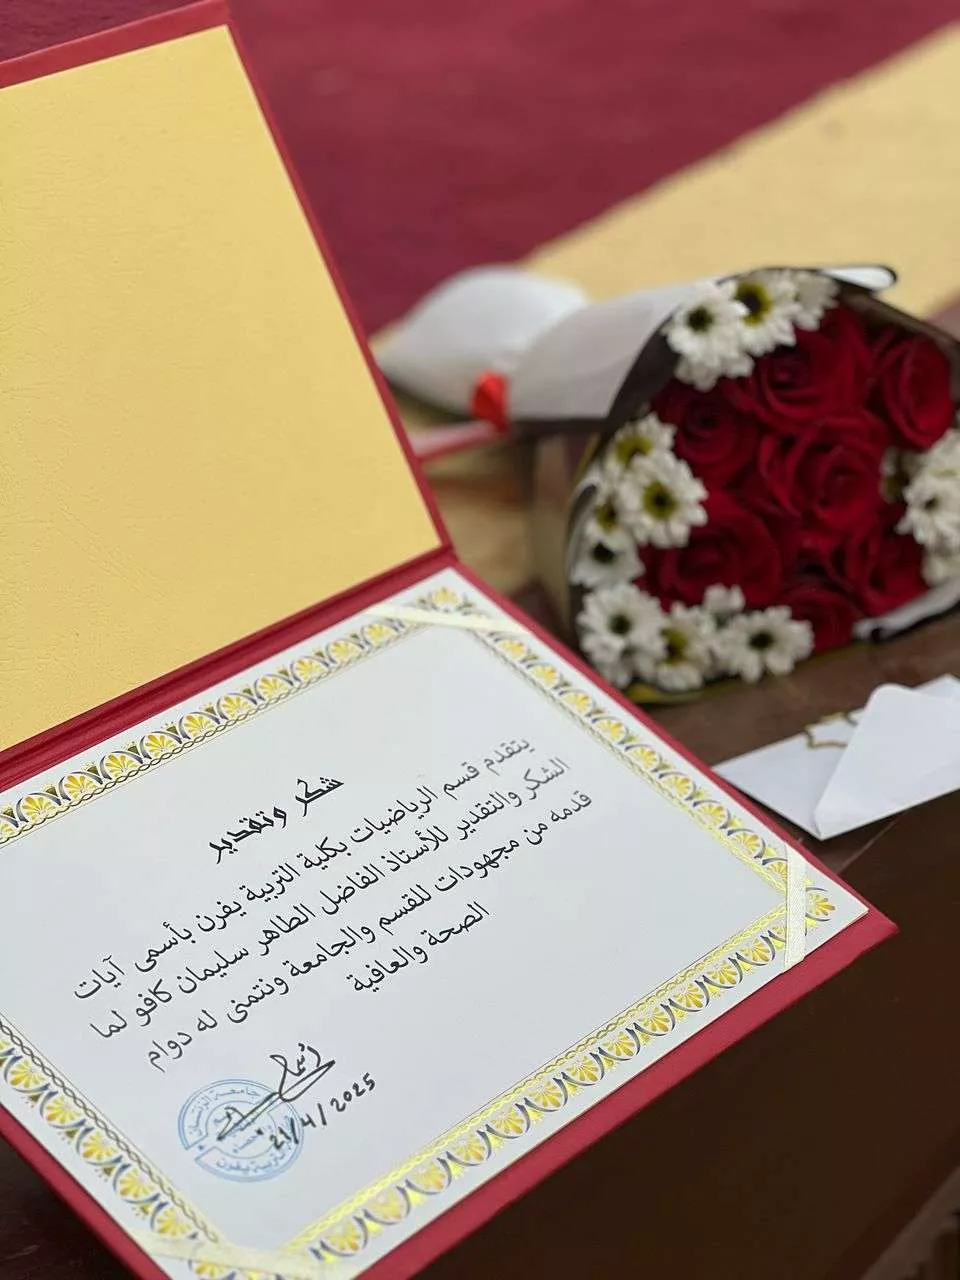 شكر وتقدير
يتقدم قسم الرياضيات بكلية التربية يفرن بأسمى آيات
الشكر والتقدير للأستاذ الفاضل الطاهر سليمان كافو لما
قدمه من مجهودات للقسم والجامعة ونتمنى له دوام
الصحة والعافية
21/4/2025
جامعة الزنتان
التربية يفرن